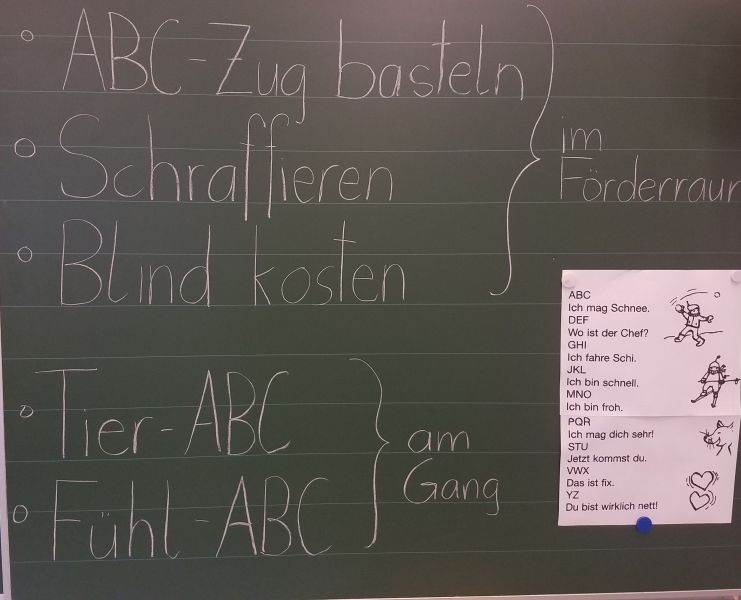 ABC-Zug basteln
Schraffieren
Blind kosten
im
Förderraum
Tier-ABC
Fühl-ABC
am
Gang
ABC
Ich mag Schnee.
DEF
Wo ist der Chef?
GHI
Ich fahre Schi.
JKL
Ich bin schnell.
MNO
Ich bin froh.
PQR
Ich mag dich sehr!
STU
Jetzt kommst du.
VWX
Das ist fix.
YZ
Du bist wirklich nett!